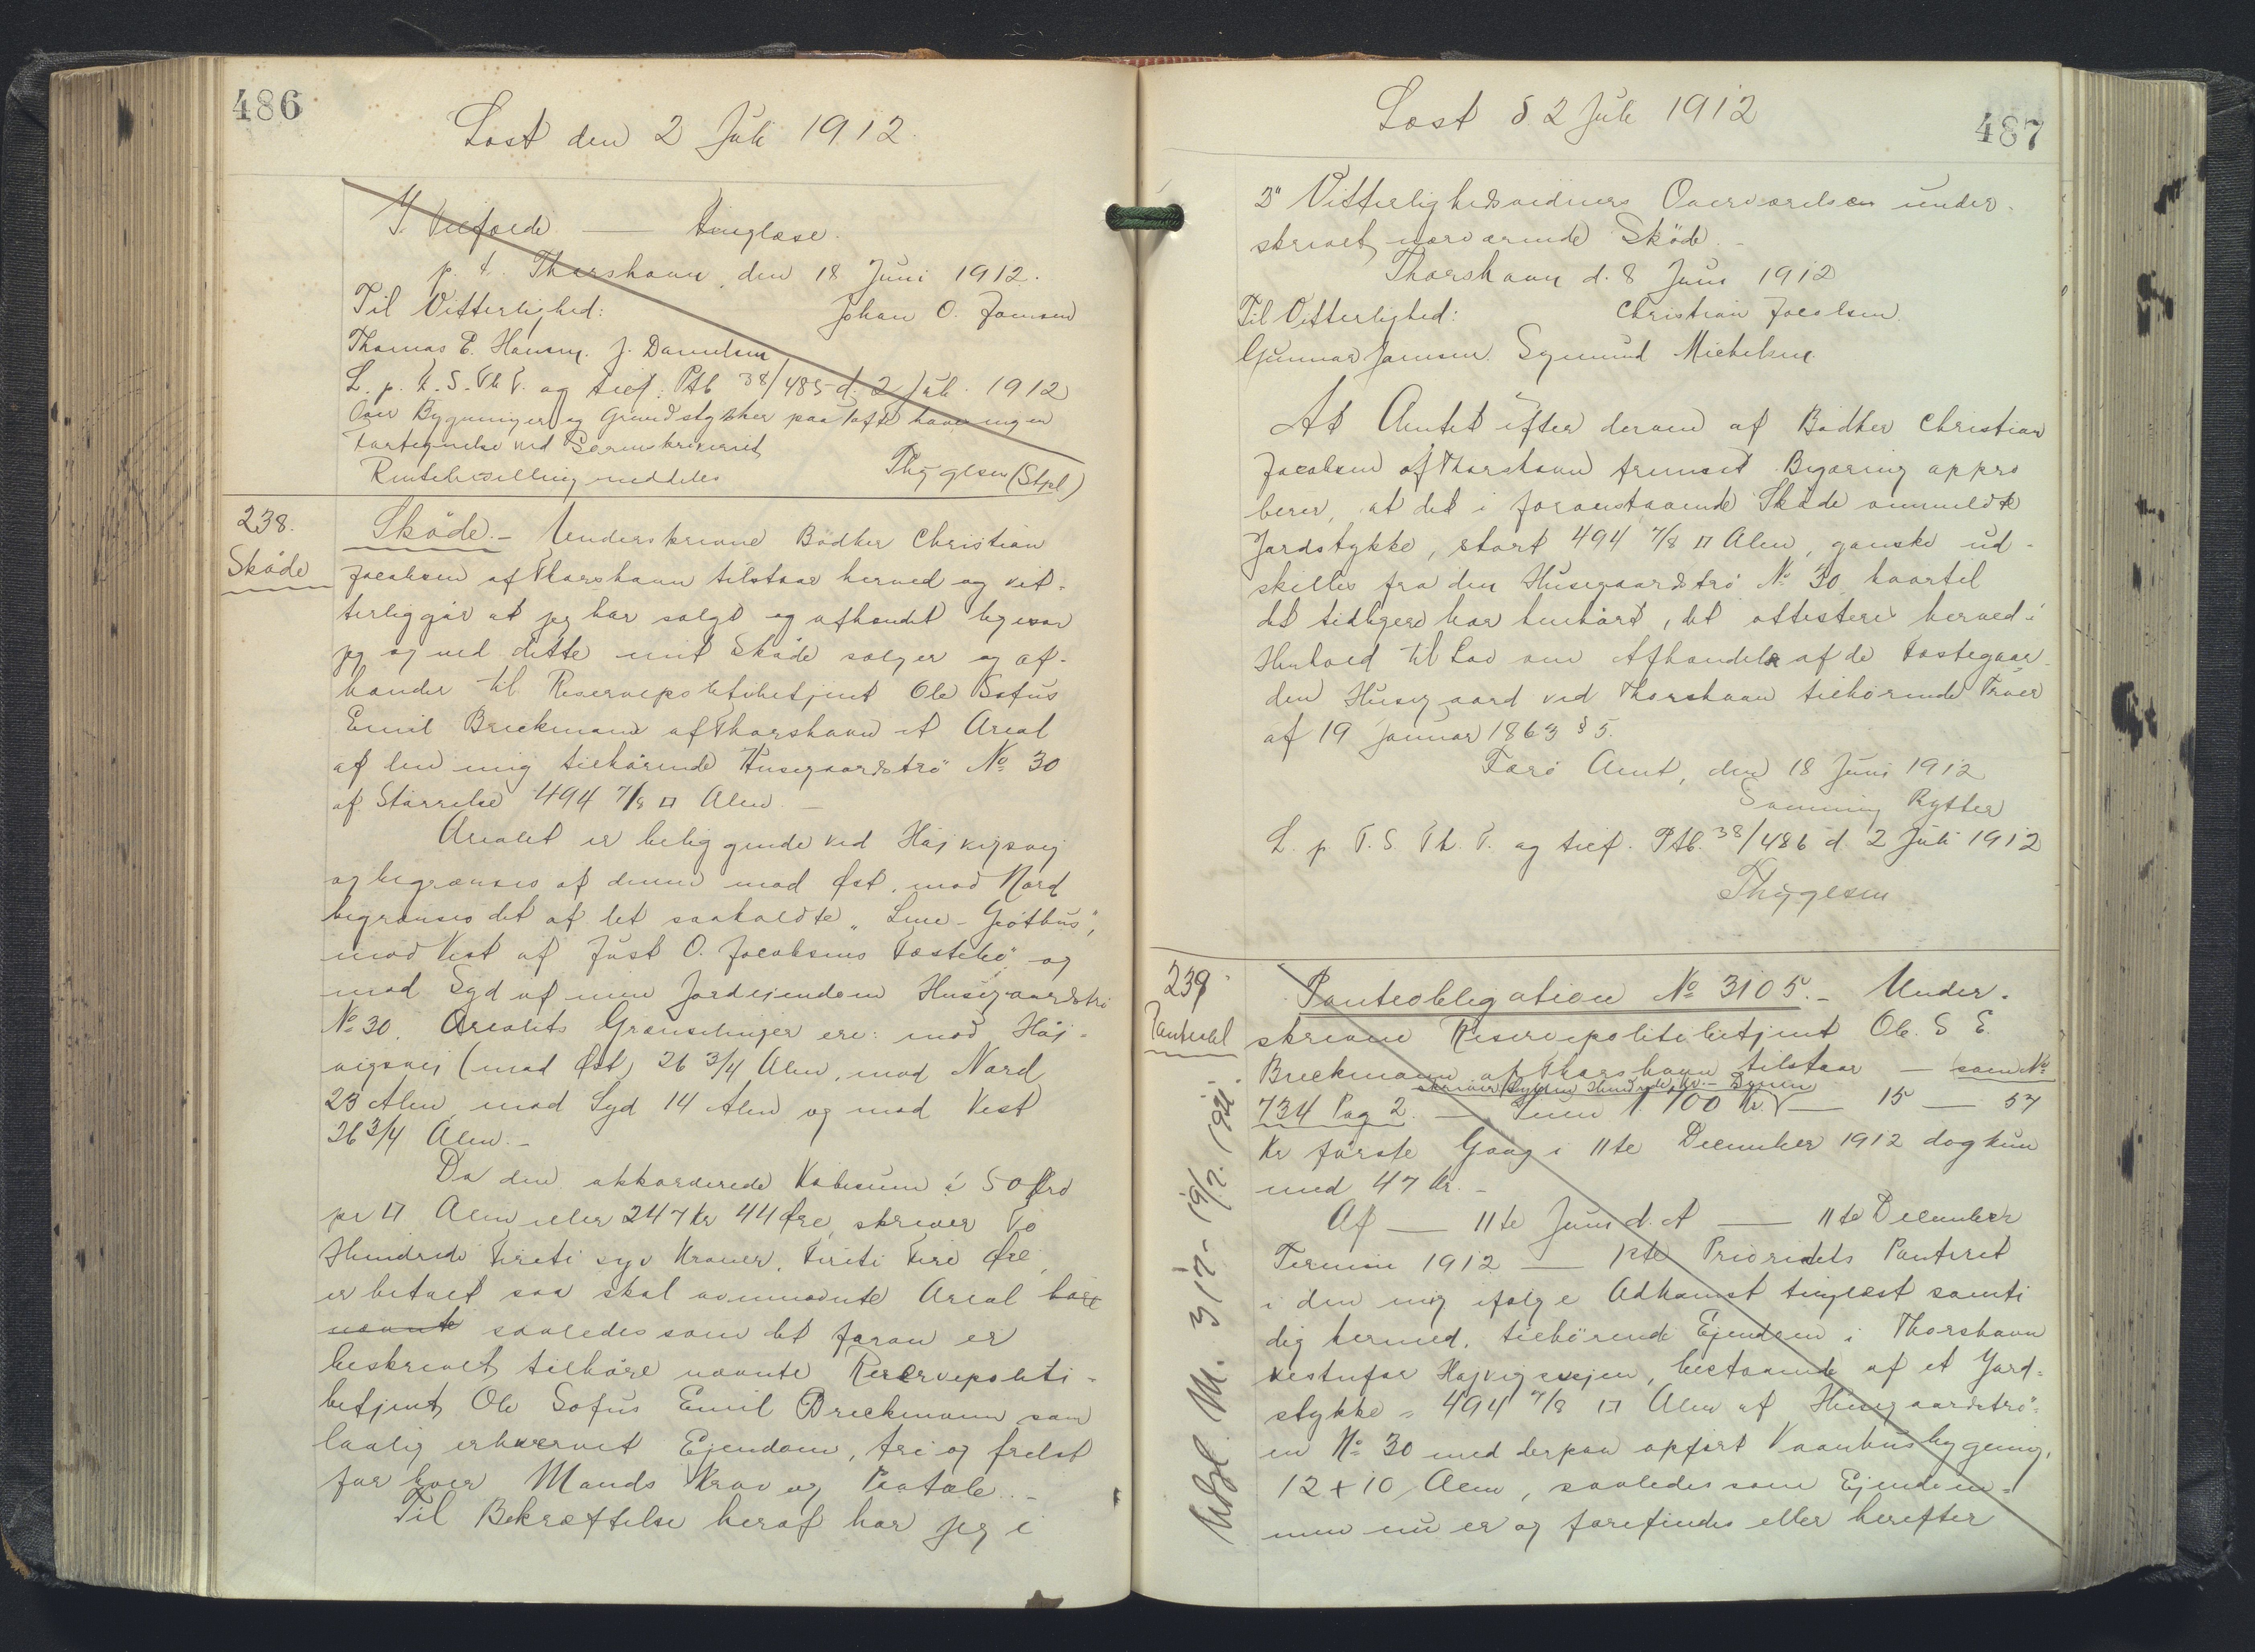 486
Læst den 2 Juli 1912.
I Tilfælde — tinglæse.
p. t. Thorshavn, den 18 Juni 1912.
Til Vitterlighed: Johan O. Joensen
Thomas E. Hansen. J. Danielsen
L. p. T. S. Th T. og tilf. Ptb 38/485 d. 2 Juli 1912
Over Bygninger og Grundstykker paa Tofte haves ingen
Fortegnelse ved Sorenskriveriet
Rentebevilling meddeles Thygesen (Stpl)
238.
Sköde
Sköde.- Underskrevne Bødker Christian
Jacobsen af Thorshavn tilstaar herved og vit-
terliggør at jeg har solgt og afhændet ligesom
jeg og ved dette mit Sköde sælger og af-
hænder til Reservepolitibetjent Ole Sofus
Emil Breckmann af Thorshavn et Areal
af den mig tilhørende Husegaardstrø No 30
af Størrelse 494 7/8 □ Alen.-
Arealet er beliggende ved Højvigsvej
og begrænses af denne mod Øst, mod Nord
begrænses det af det saakaldte "Line-Gróthus",
mod Vest af Just O. Jacobsens Fæstebø og
mod Syd af min Jordejendom Husegaardstrø
No 30. Arealets Grænselinjer ere: mod Høj-
vigsvej (mod Øst) 26 3/4 Alen, mod Nord
23 Alen, mod Syd 14 Alen og mod Vest
26 3/4 Alen.-
Da den akkorderede Købesum á 50 Øre
pr □ Alen eller 247 Kr 44 Øre, skriver To
Hundrede Firti syv Kroner, Firti Fire Øre,
er betalt saa skal ovennævnte Areal høre
nævnte saaledes som det foran er
beskrevet tilhøre nævnte Reservepoliti-
betjent Ole Sofus Emil Breckmann som
lovlig erhvervet Ejendom, fri og frelst
for hver Mands Krav og Paatale.-
Til Bekræftelse heraf har jeg i
Læst d. 2 Juli 1912
487
2de Vitterlighedsvidners Overværelse under-
skrevet nærværende Sköde.-
Thorshavn d. 8 Juni 1912
Til Vitterlighed: Christian Jacobsen.
Gunnar Joensen. Sigmund Michelsen.
At Amtet efter derom af Bødker Christian
Jacobsen af Thorshavn fremsat Begæring appro
berer, at det i foranstaaende Sköde ommeldte
Jordstykke, stort 494 7/8 □ Alen, ganske ud-
skilles fra den Husegaardstrø No 30 hvortil
det tidligere har henhørt, det attesteres herved i
Henhold til Lov om Afhændelse af de Fæstegaar-
den Husegaard ved Thorshavn tilhørende Trøer
af 19 Januar 1863 § 5.
Færø Amt, den 18 Juni 1912
Svenning Rytter
L. p. T. S. Th. T. og tilf. Ptb. 38/486 d. 2 Juli 1912
Thygesen
239.
Panteobl
Panteobligation No 3105.- Under-
skrevne Reservepolitibetjent Ole S. E.
Breckmann af Thorshavn tilstaar — som No
skriver Sytten Hundrede Kr.-
734 Pag 2. — 1700 Kr — 15 — 57
Kr første Gang i 11te December 1912 dog kun
med 47 Kr.-
Af — 11te Juni d. A — 11te December
Termin 1912 — 1ste Prioritets Panteret
i den mig ifølge Adkomst tinglæst samti
dig hermed, tilhørende Ejendom i Thorshavn
vestenfor Højvigsvejen, bestaaende af et Jord-
stykke = 494 7/8 □ Alen af Husegaardstrø-
en No 30 med derpaa opført Vaanhusbygning,
12 + 10 Alen, saaledes som Ejendom-
men nu er og forefindes eller herefter
Udsl. M. 3/17 - 19/7. 1921.